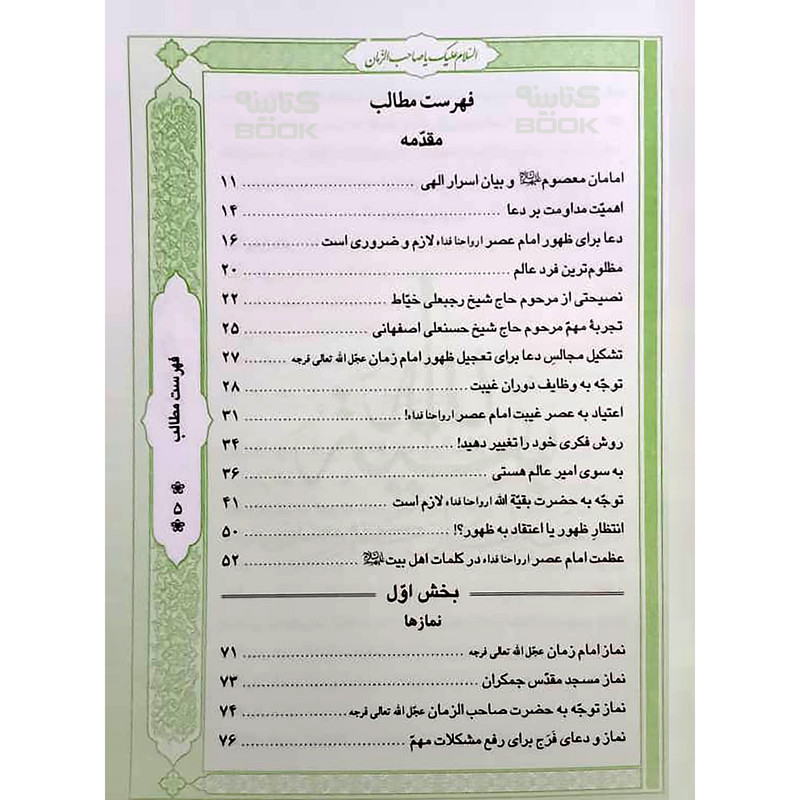 السّلام علیک یا صاحب الزّمان
فهرست مطالب
مقدّمه
امامان معصوم علیهم السلام و بیان اسرار الهی ........ ۱۱
اهمیّت مداومت بر دعا ........ ۱۴
دعا برای ظهور امام عصر ارواحنا فداه لازم و ضروری است ........ ۱۶
مظلوم‌ترین فرد عالم ........ ۲۰
نصیحتی از مرحوم حاج شیخ رجبعلی خیّاط ........ ۲۲
تجربهٔ مهمّ مرحوم حاج شیخ حسنعلی اصفهانی ........ ۲۵
تشکیل مجالس دعا برای تعجیل ظهور امام زمان عجّل الله تعالی فرجه ........ ۲۷
توجّه به وظایف دوران غیبت ........ ۲۸
اعتیاد به عصر غیبت امام عصر ارواحنا فداه! ........ ۳۱
روش فکری خود را تغییر دهید! ........ ۳۴
به سوی امیر عالم هستی ........ ۳۶
توجّه به حضرت بقیّة الله ارواحنا فداه لازم است ........ ۴۱
انتظارِ ظهور یا اعتقاد به ظهور؟! ........ ۵۰
عظمت امام عصر ارواحنا فداه در کلمات اهل بیت علیهم السلام ........ ۵۲
بخش اوّل
نمازها
نماز امام زمان عجّل الله تعالی فرجه ........ ۷۱
نماز مسجد مقدّس جمکران ........ ۷۳
نماز توجّه به حضرت صاحب الزمان عجّل الله تعالی فرجه ........ ۷۴
نماز و دعای فَرَج برای رفع مشکلات مهمّ ........ ۷۶
فهرست مطالب
۵
کتابینو
BOOK
کتابینو
BOOK